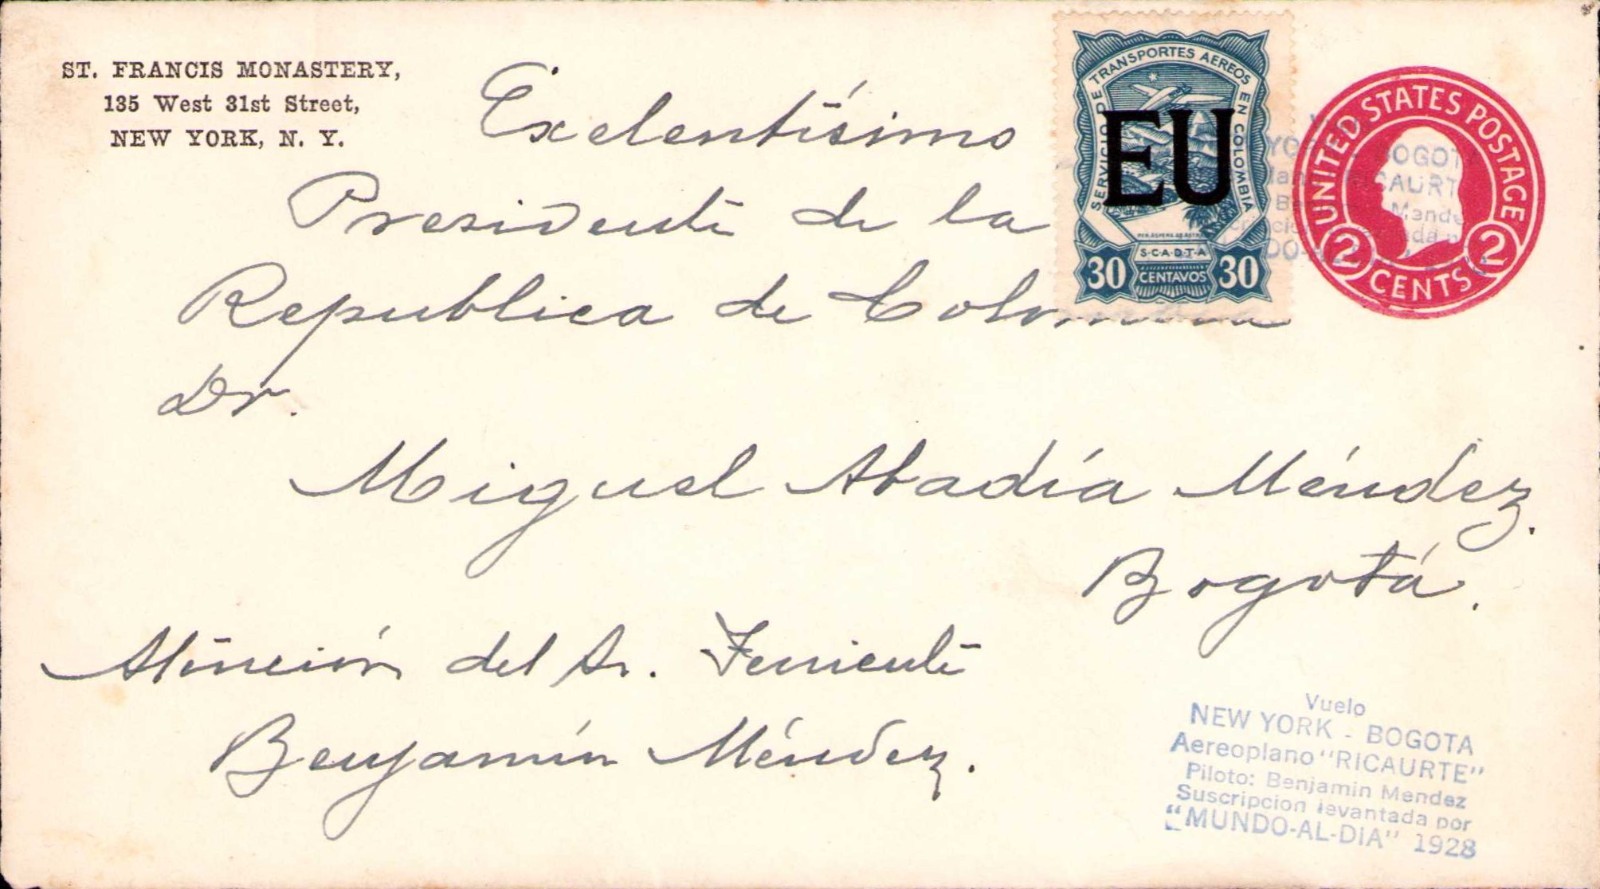 ST. FRANCIS MONASTERY,
135 West 31st Street,
NEW YORK, N. Y.
SERVICIO DE TRANSPORTES AEREOS EN COLOMBIA
EU
S·C·A·D·T·A
30 CENTAVOS 30
UNITED STATES POSTAGE
2 CENTS 2
Exelentísimo
Presidente de la
Republica de Colombia
Dr.
Miguel Abadía Méndez.
Bogotá.
Atención del Sr. Teniente
Benjamín Méndez.
Vuelo
NEW YORK - BOGOTA
Aereoplano "RICAURTE"
Piloto: Benjamin Mendez
Suscripcion levantada por
"MUNDO-AL-DIA" 1928